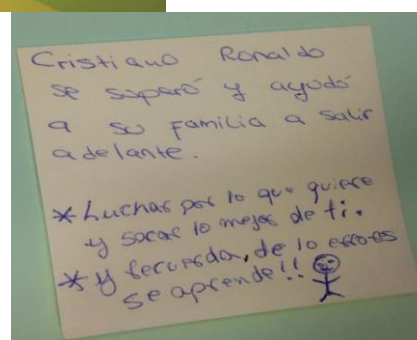 Cristiano Ronaldo
se saparó y ayudó
a su familia a salir
adelante.
*Luchar por lo que quiere
y sacar lo mejor de ti.
*y recuerda, de lo errores
se aprende!!